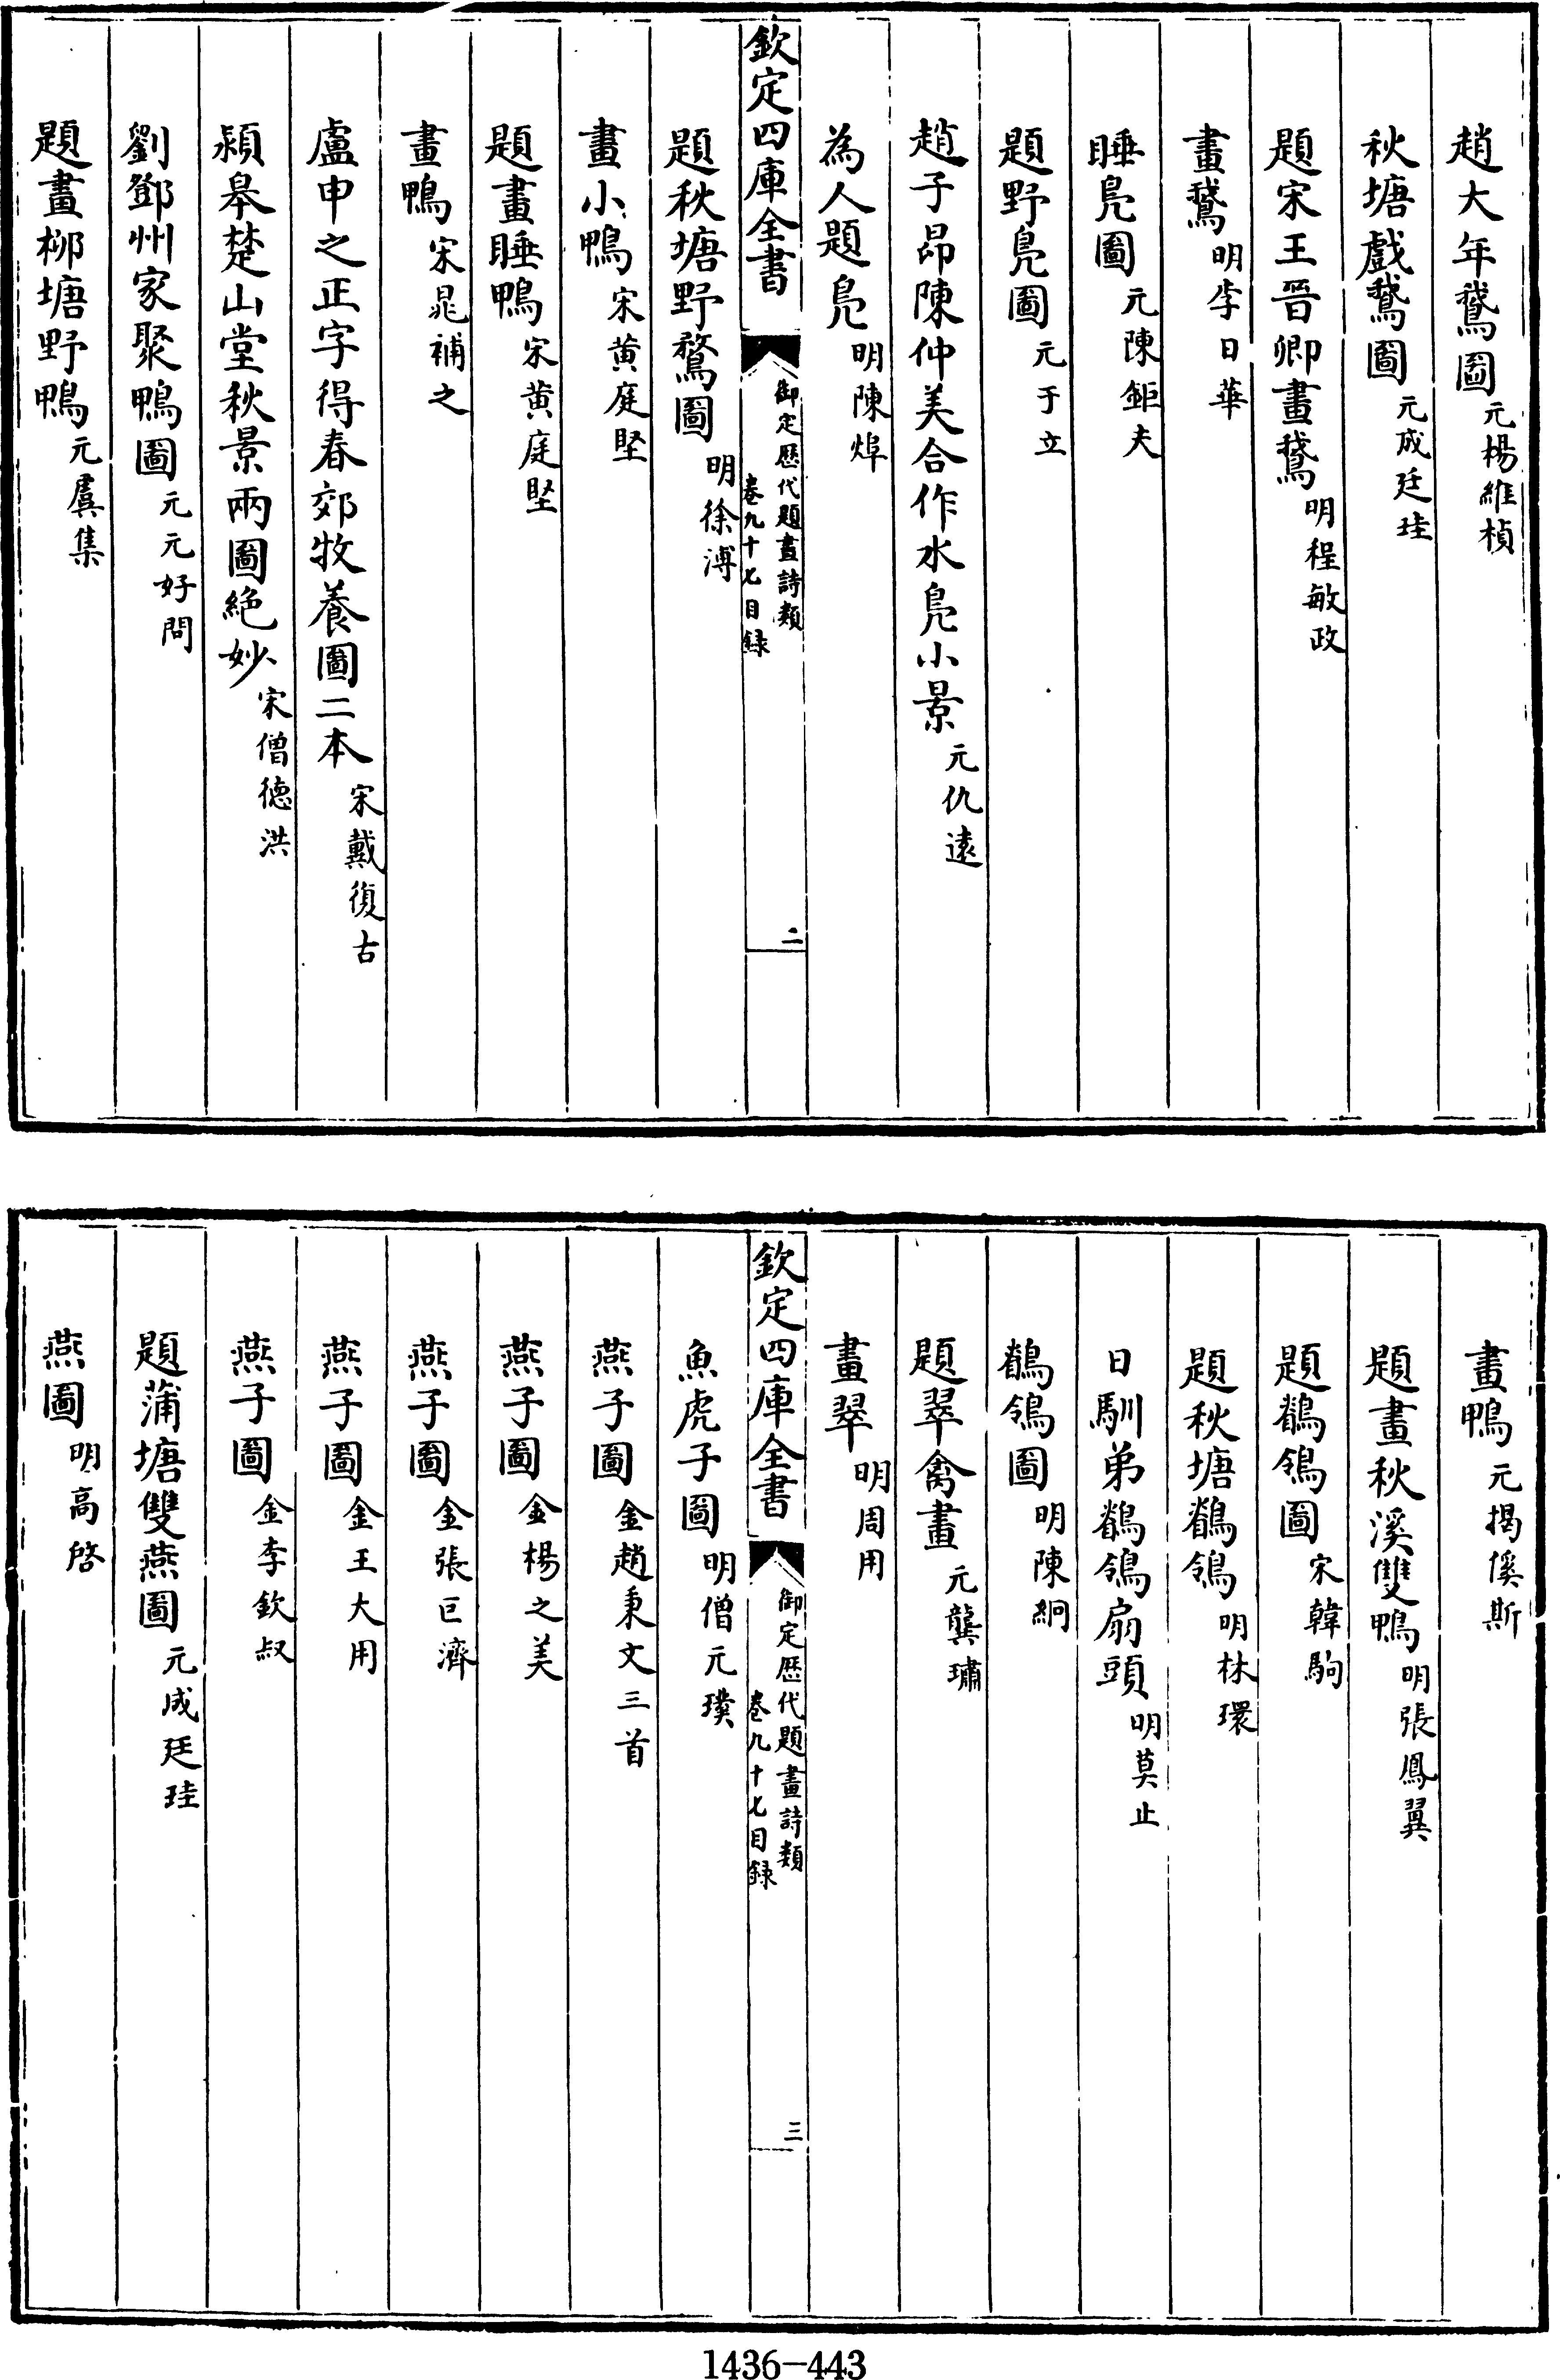 趙大年鵞圖元楊維楨
秋塘戲鵞圖元成廷珪
題宋王晉卿畫鵞明程敏政
畫鵞明李日華
睡鳧圖元陳鉅夫
題野鳧圖元于立
趙子昂陳仲美合作水鳧小景元仇逺
為人題鳧明陳焯
欽定四庫全書
御定歴代題畫詩類
卷九十七目録
二
題秋塘野鶩圖明徐溥
畫小鴨宋黄庭堅
題畫睡鴨宋黄庭堅
畫鴨宋晁補之
盧申之正字得春郊牧養圖二本宋戴復古
潁皋楚山堂秋景兩圖絶妙宋僧德洪
劉鄧州家聚鴨圖元元好問
題畫柳塘野鴨元虞集
畫鴨元揭傒斯
題畫秋溪雙鴨明張鳳翼
題鶺鴒圖宋韓駒
題秋塘鶺鴒明林環
日馴弟鶺鴒扇頭明莫止
鶺鴒圖明陳絅
題翠禽畫元龔璛
畫翠明周用
欽定四庫全書
御定歴代題畫詩類
卷九十七目録
三
魚虎子圖明僧元璞
燕子圖金趙秉文三首
燕子圖金楊之美
燕子圖金張巨濟
燕子圖金王大用
燕子圖金李欽叔
題蒲塘雙燕圖元成廷珪
燕圖明高啓
1436-443